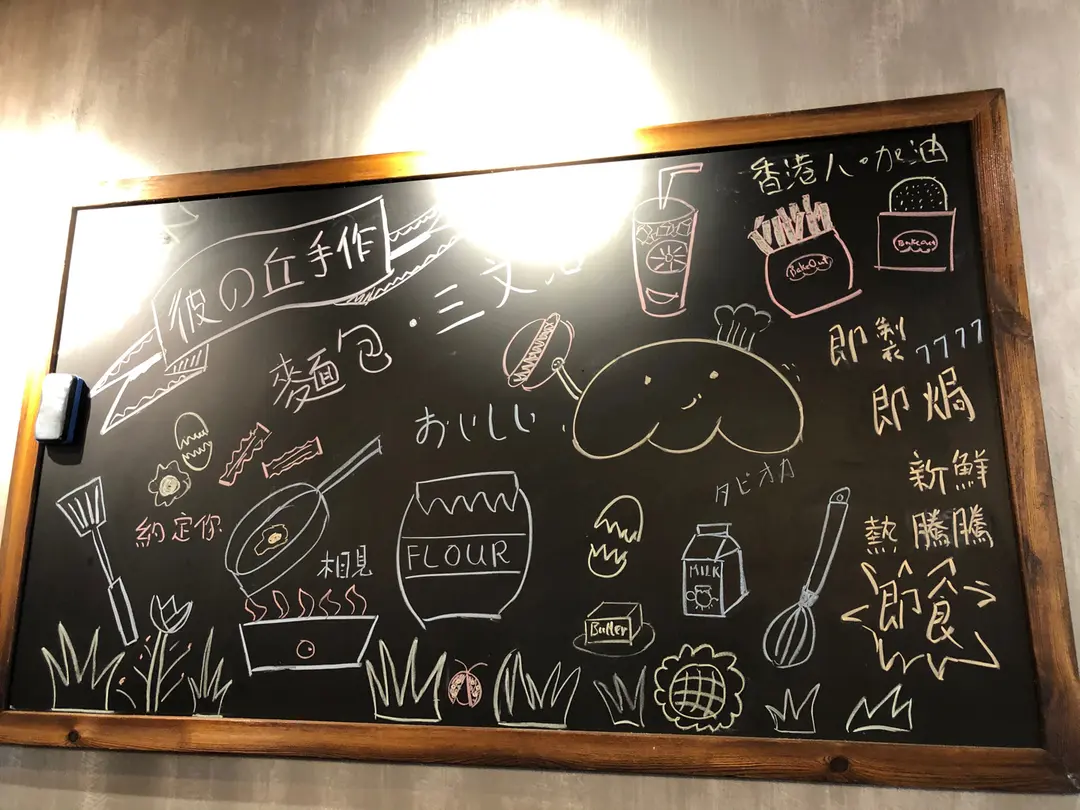 香港人。加油
彼の丘手作
麵包・三文
BakeOut
BakeOut
即製
即焗
おいしい
タピオカ
新鮮
熱騰騰
即食
約定你
相見
FLOUR
MILK
Butter